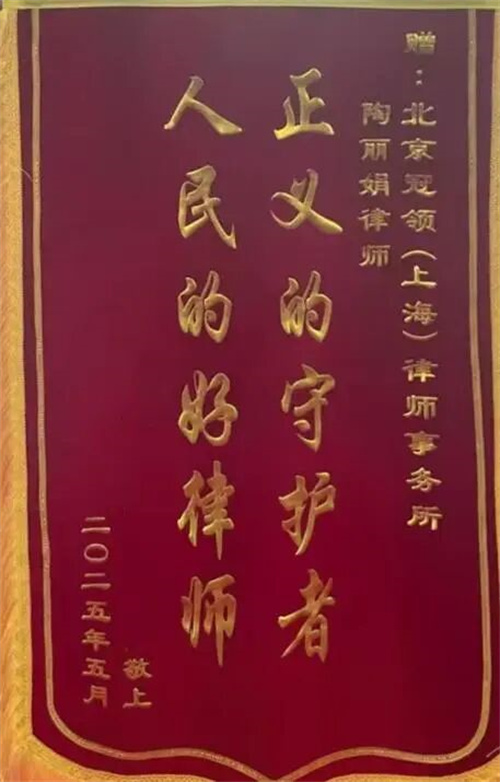 赠：北京冠领（上海）律师事务所
陶丽娟律师
正义的守护者
人民的好律师
敬上
二〇二五年五月